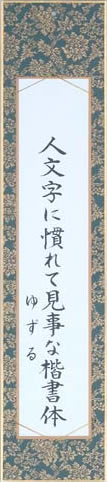 人文字に慣れて見事な楷書体
ゆずる